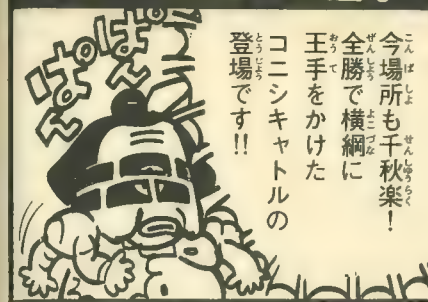 今場所も千秋楽！
全勝で横綱に
王手をかけた
コニシキャトルの
登場です!!
ぱんぱん
ぱん